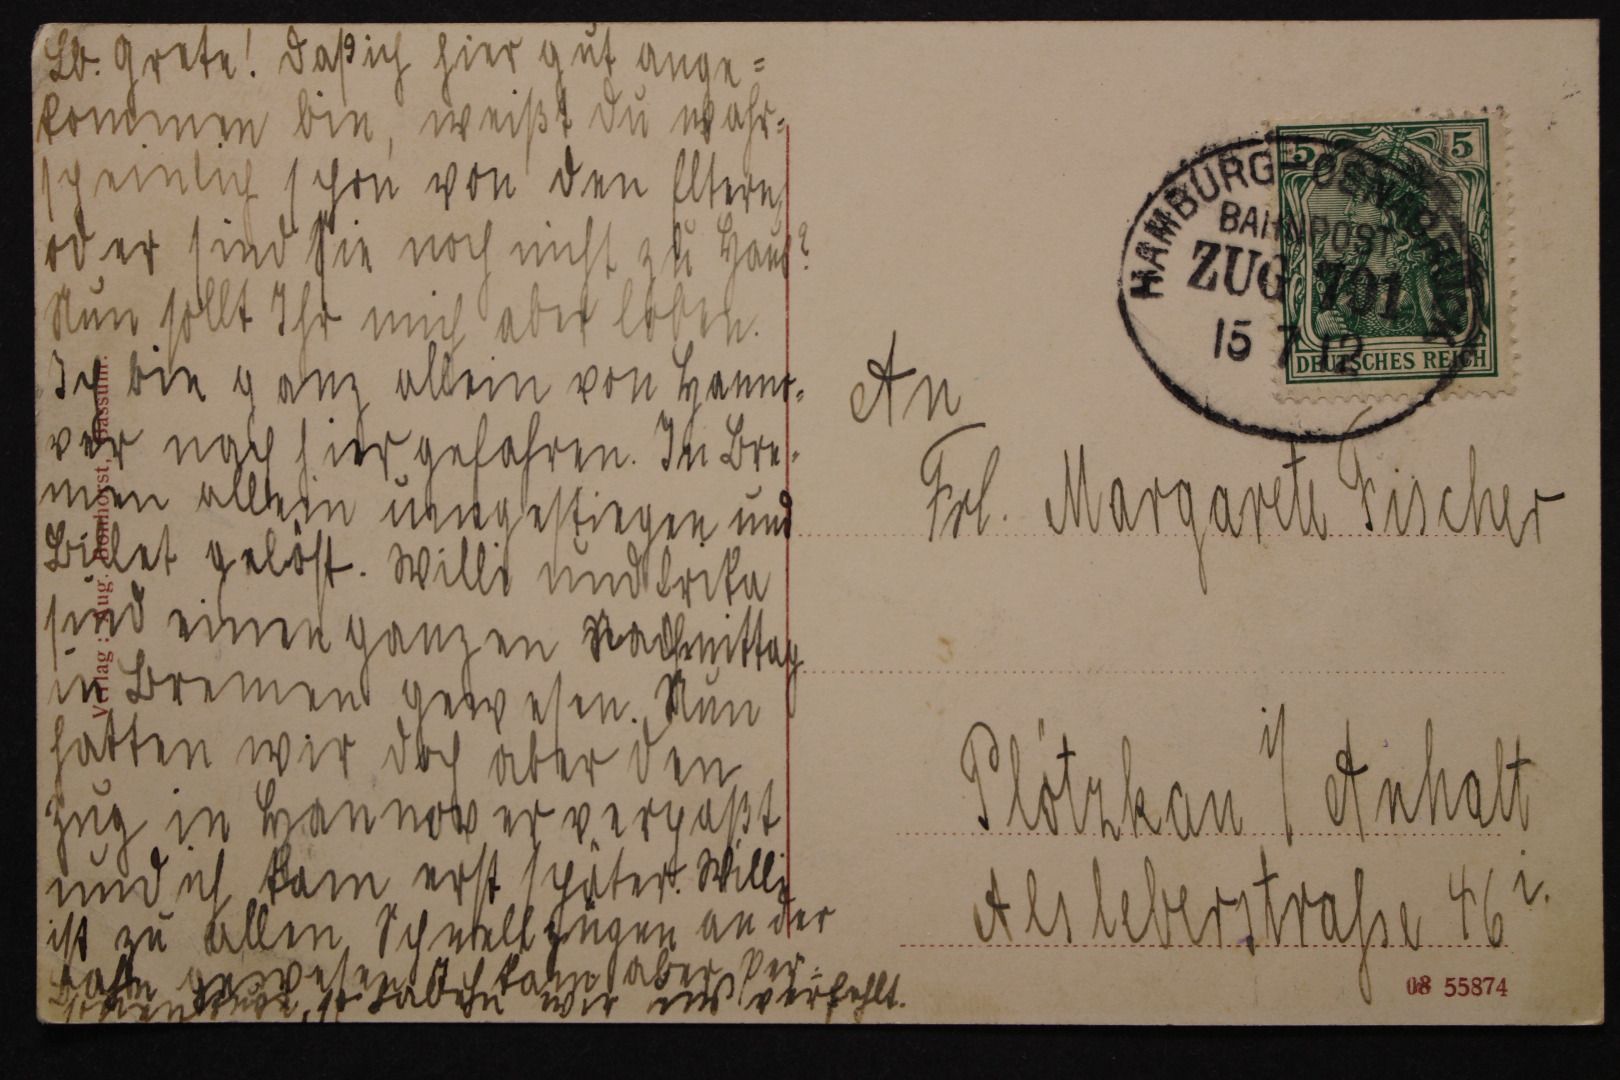 Lb. Grete! Daß ich hier gut ange=
kommen bin, weißt du wahr=
scheinlich schon von den Eltern,
oder sind sie noch nicht zu Haus?
Nun sollt Ihr mich aber loben.
Ich bin ganz allein von Hanno=
ver nach hier gefahren. In Bre=
men allein umgestiegen und
Billet gelöst. Willi und Erika
sind einen ganzen Nachmittag
in Bremen gewesen. Nun
hatten wir doch aber den
Zug in Hannover verpaßt
und ich kam erst später. Willi
ist zu allen Schnellzügen an der
Bahn gewesen. Ich kam aber per=
sonenzug, so haben wir uns verfehlt.
Verlag: Aug. Bonhorst, Bassum.
HAMBURG-OSNABRÜCK
BAHNPOST
ZUG 701
15 7 12
5 5
DEUTSCHES REICH
An
Frl. Margarete Fischer
Plötzkau i/ Anhalt
Alslebenerstraße 46 i.
08 55874